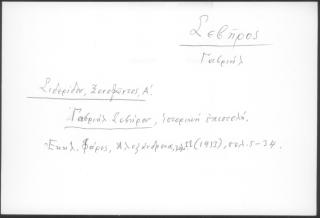 Σεβῆρος
Γαβριήλ
Σιδερίδου, Ξενοφῶντος, Α!
Γαβριήλ Σεβήρου, ἱστορικὴ ἐπιστολή.
Ἐκκλ. Φάρος, Ἀλεξάνδρεια, II (1913), σελ. 5-34.